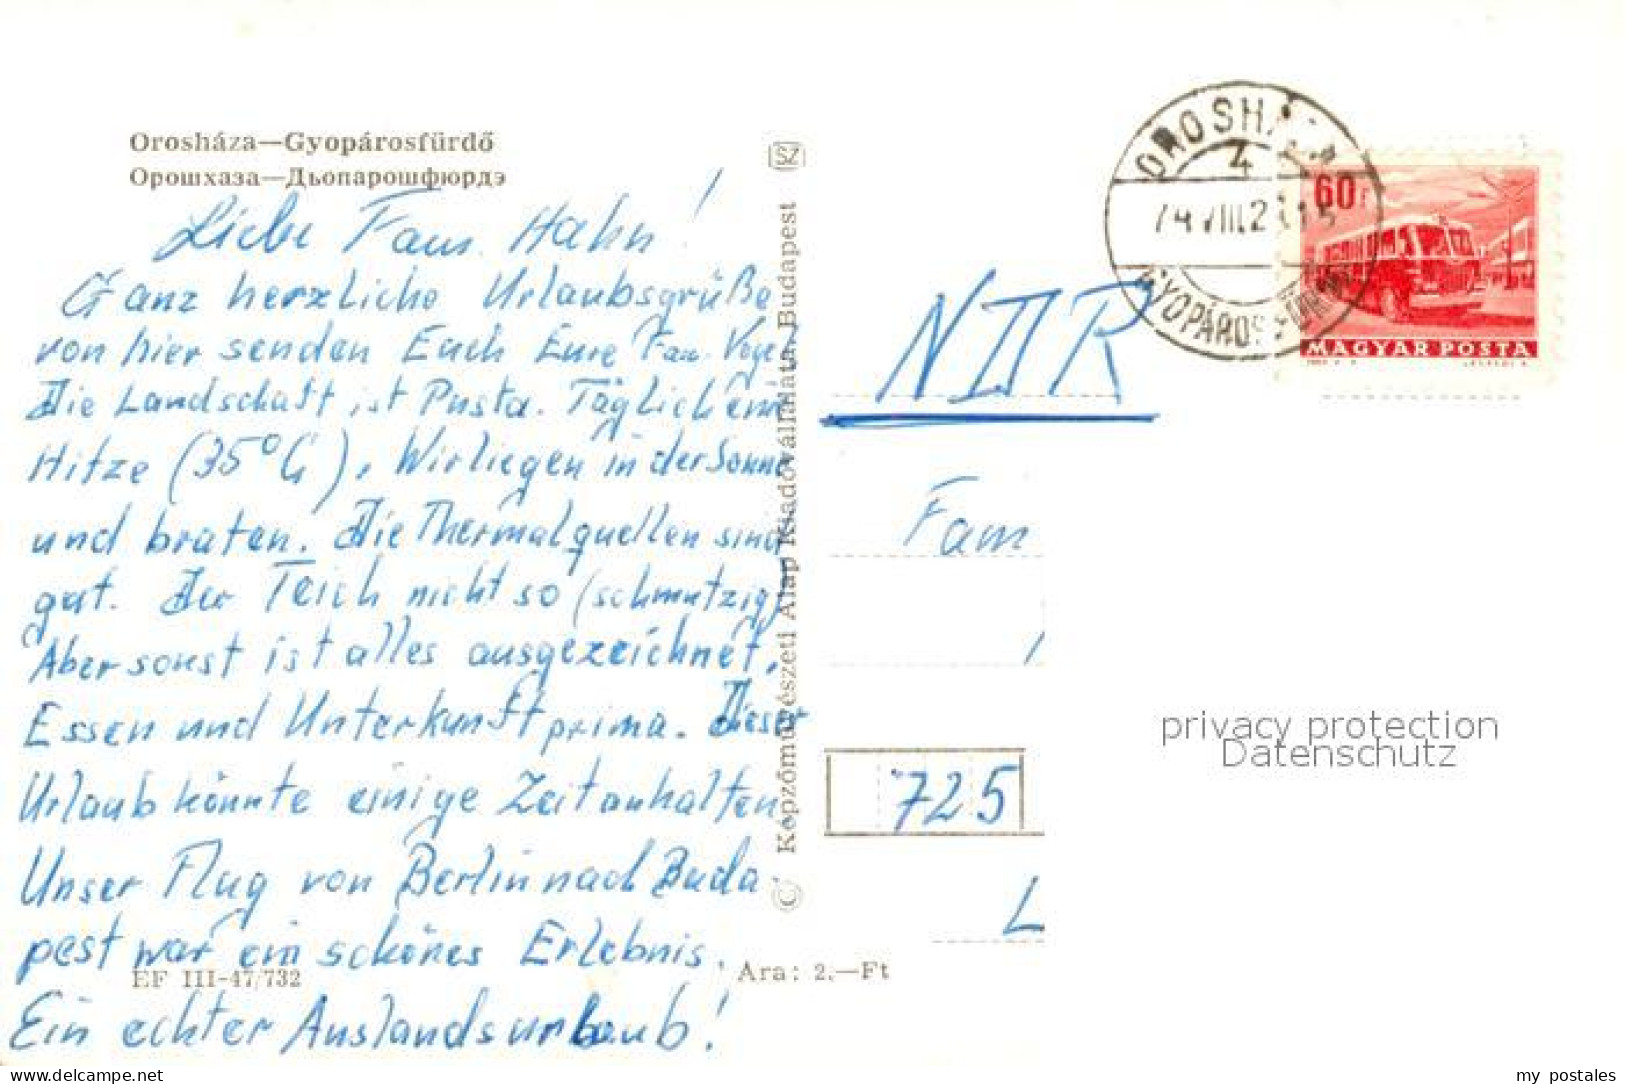 Orosháza—Gyopárosfürdő
Орошхаза—Дьопарошфюрдэ
Liebe Fam. Hahn!
Ganz herzliche Urlaubsgrüße
von hier senden Euch Eure Fam. Vogel
Die Landschaft ist Pusta. Täglich eine
Hitze (35°C), Wir liegen in der Sonne
und braten. Die Thermalquellen sind
gut. Der Teich nicht so (schmutzig)
Aber sonst ist alles ausgezeichnet,
Essen und Unterkunft prima. Dieser
Urlaub könnte einige Zeit anhalten
Unser Flug von Berlin nach Buda-
pest war ein schönes Erlebnis.
Ein echter Auslandsurlaub!
EF III-47/732
Ara: 2.—Ft
© Képzőművészeti Alap Kiadóvállalata, Budapest
SZ
OROSHÁZA
4
74 VIII.2 15
GYOPÁROSFÜRDŐ
60f
MAGYAR POSTA
NDR
Fam
725
L
privacy protection
Datenschutz
www.delcampe.net
my_postales